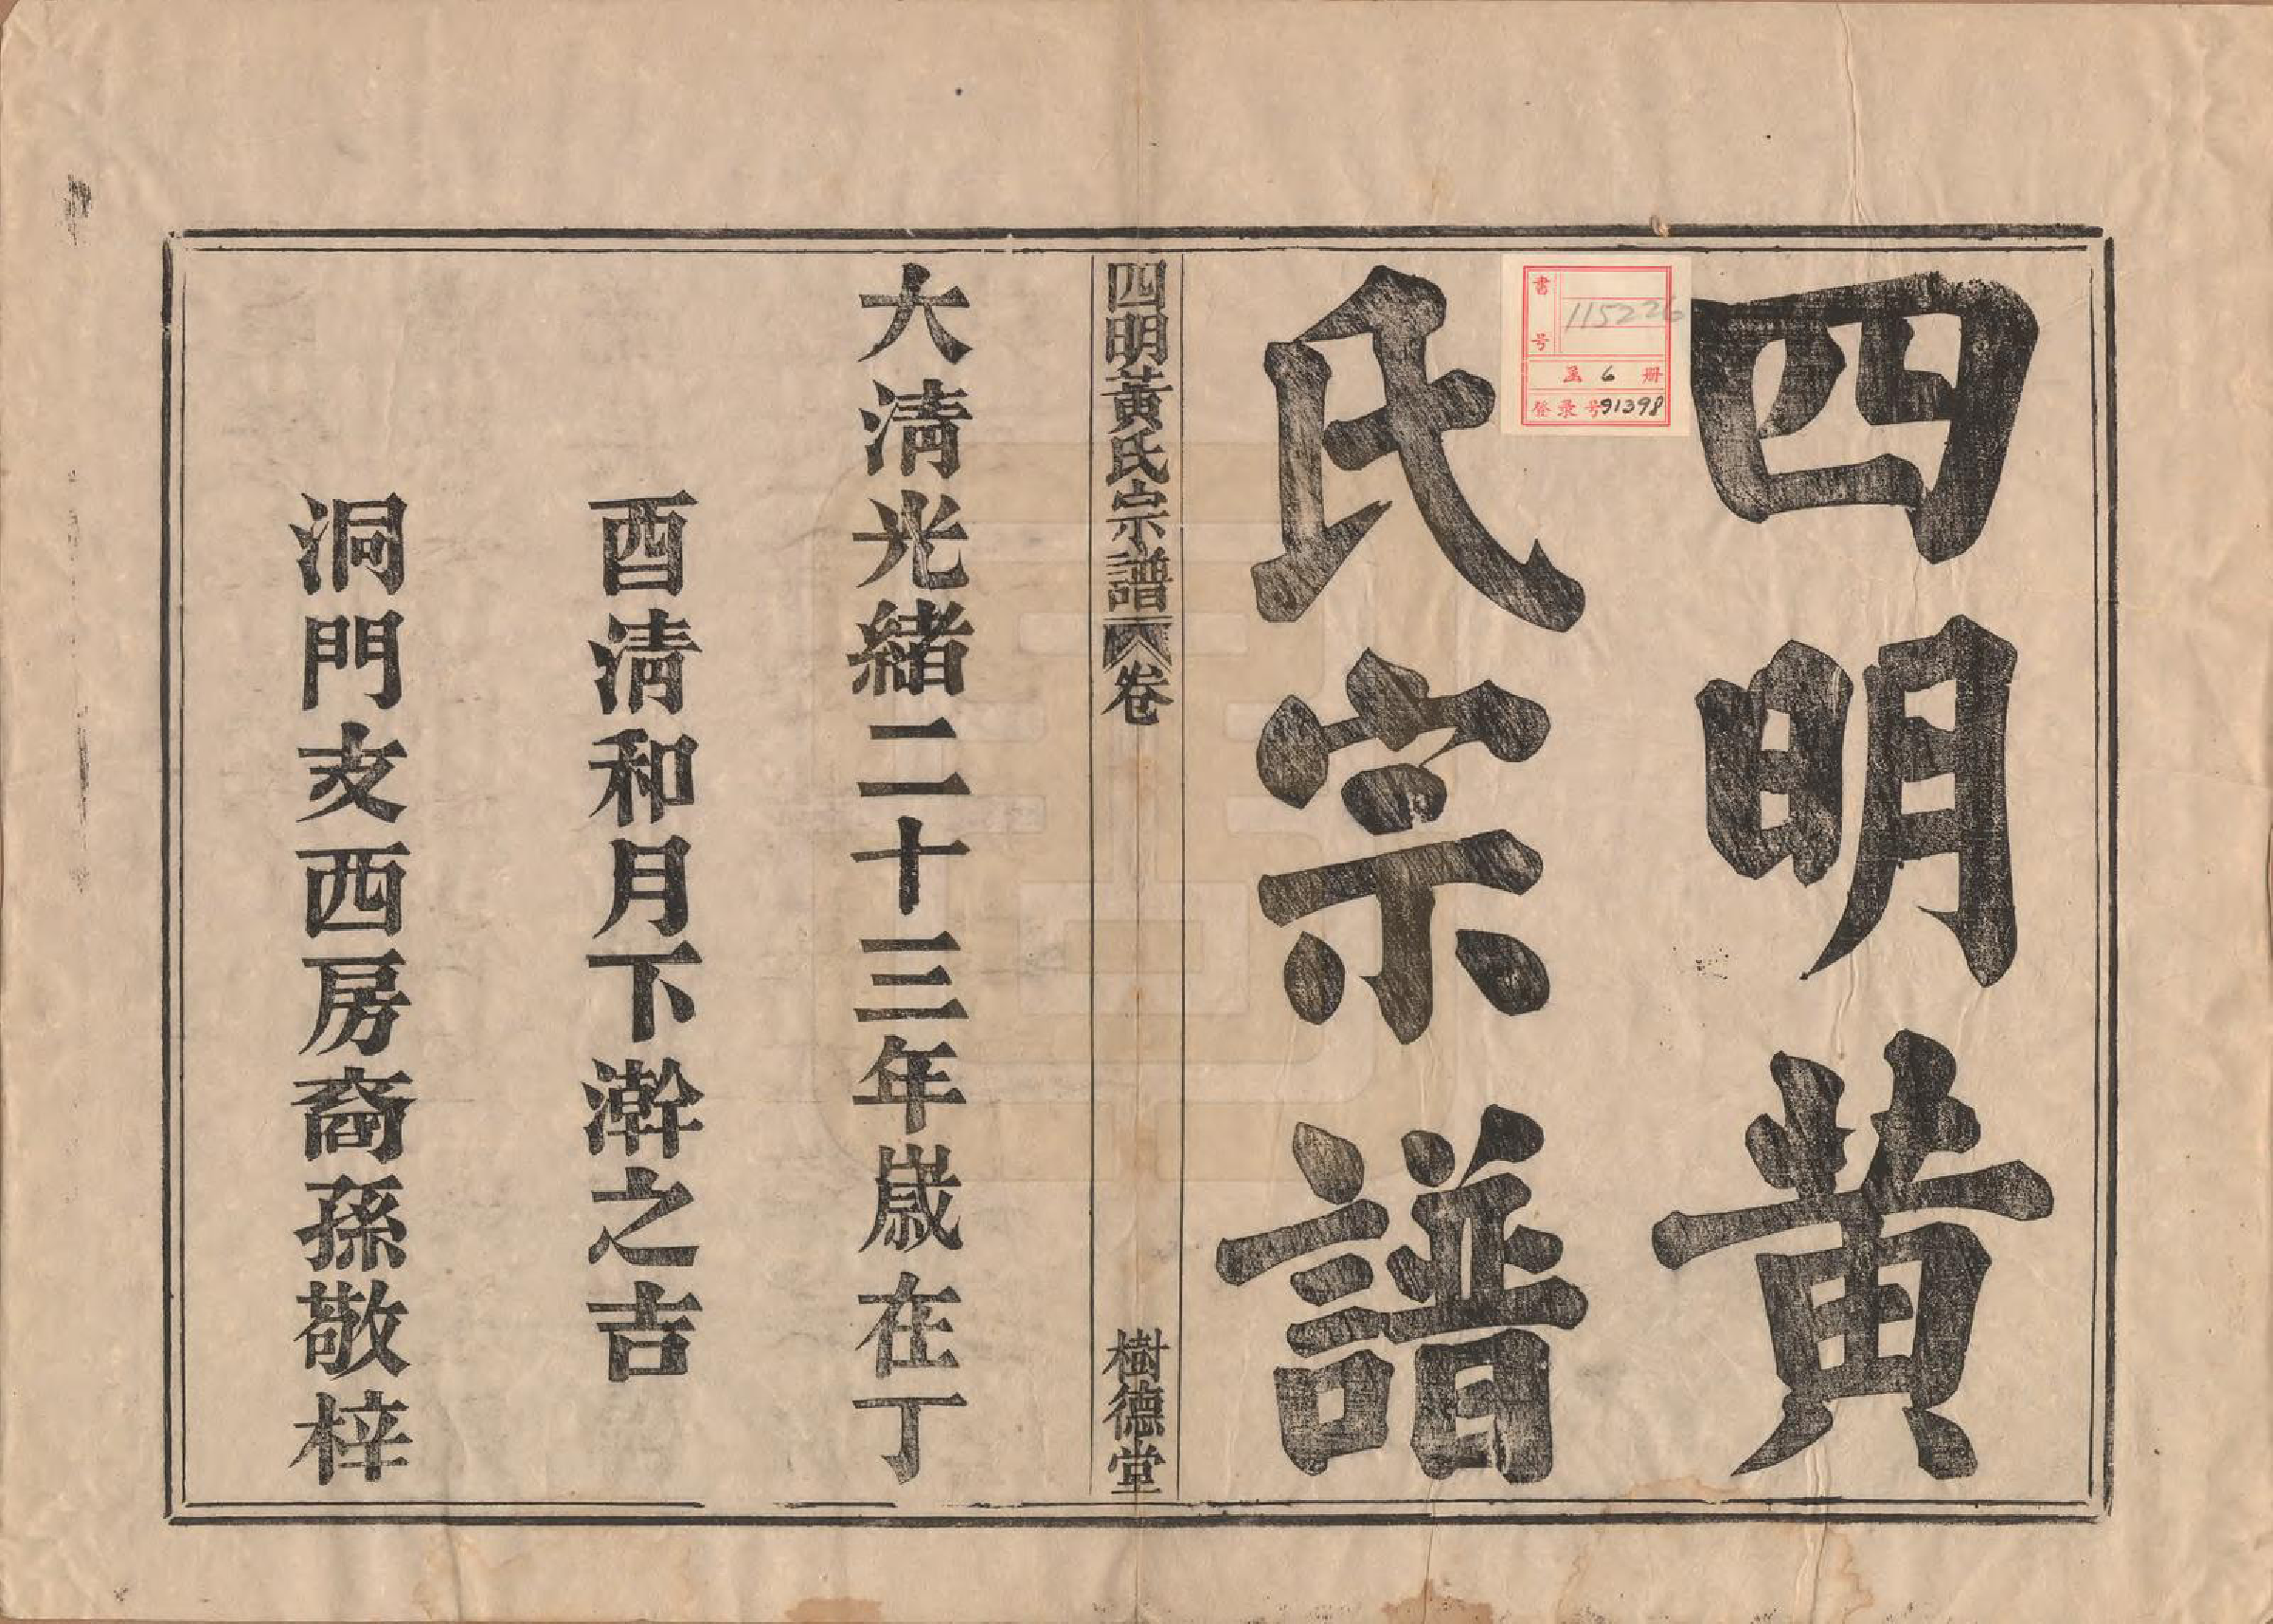 四明黄
氏宗譜
書号 115226
函 6 册
登录号 91398
四明黃氏宗譜 卷
樹德堂
大淸光緒二十三年歲在丁
酉淸和月下澣之吉
洞門支西房裔孫敬梓